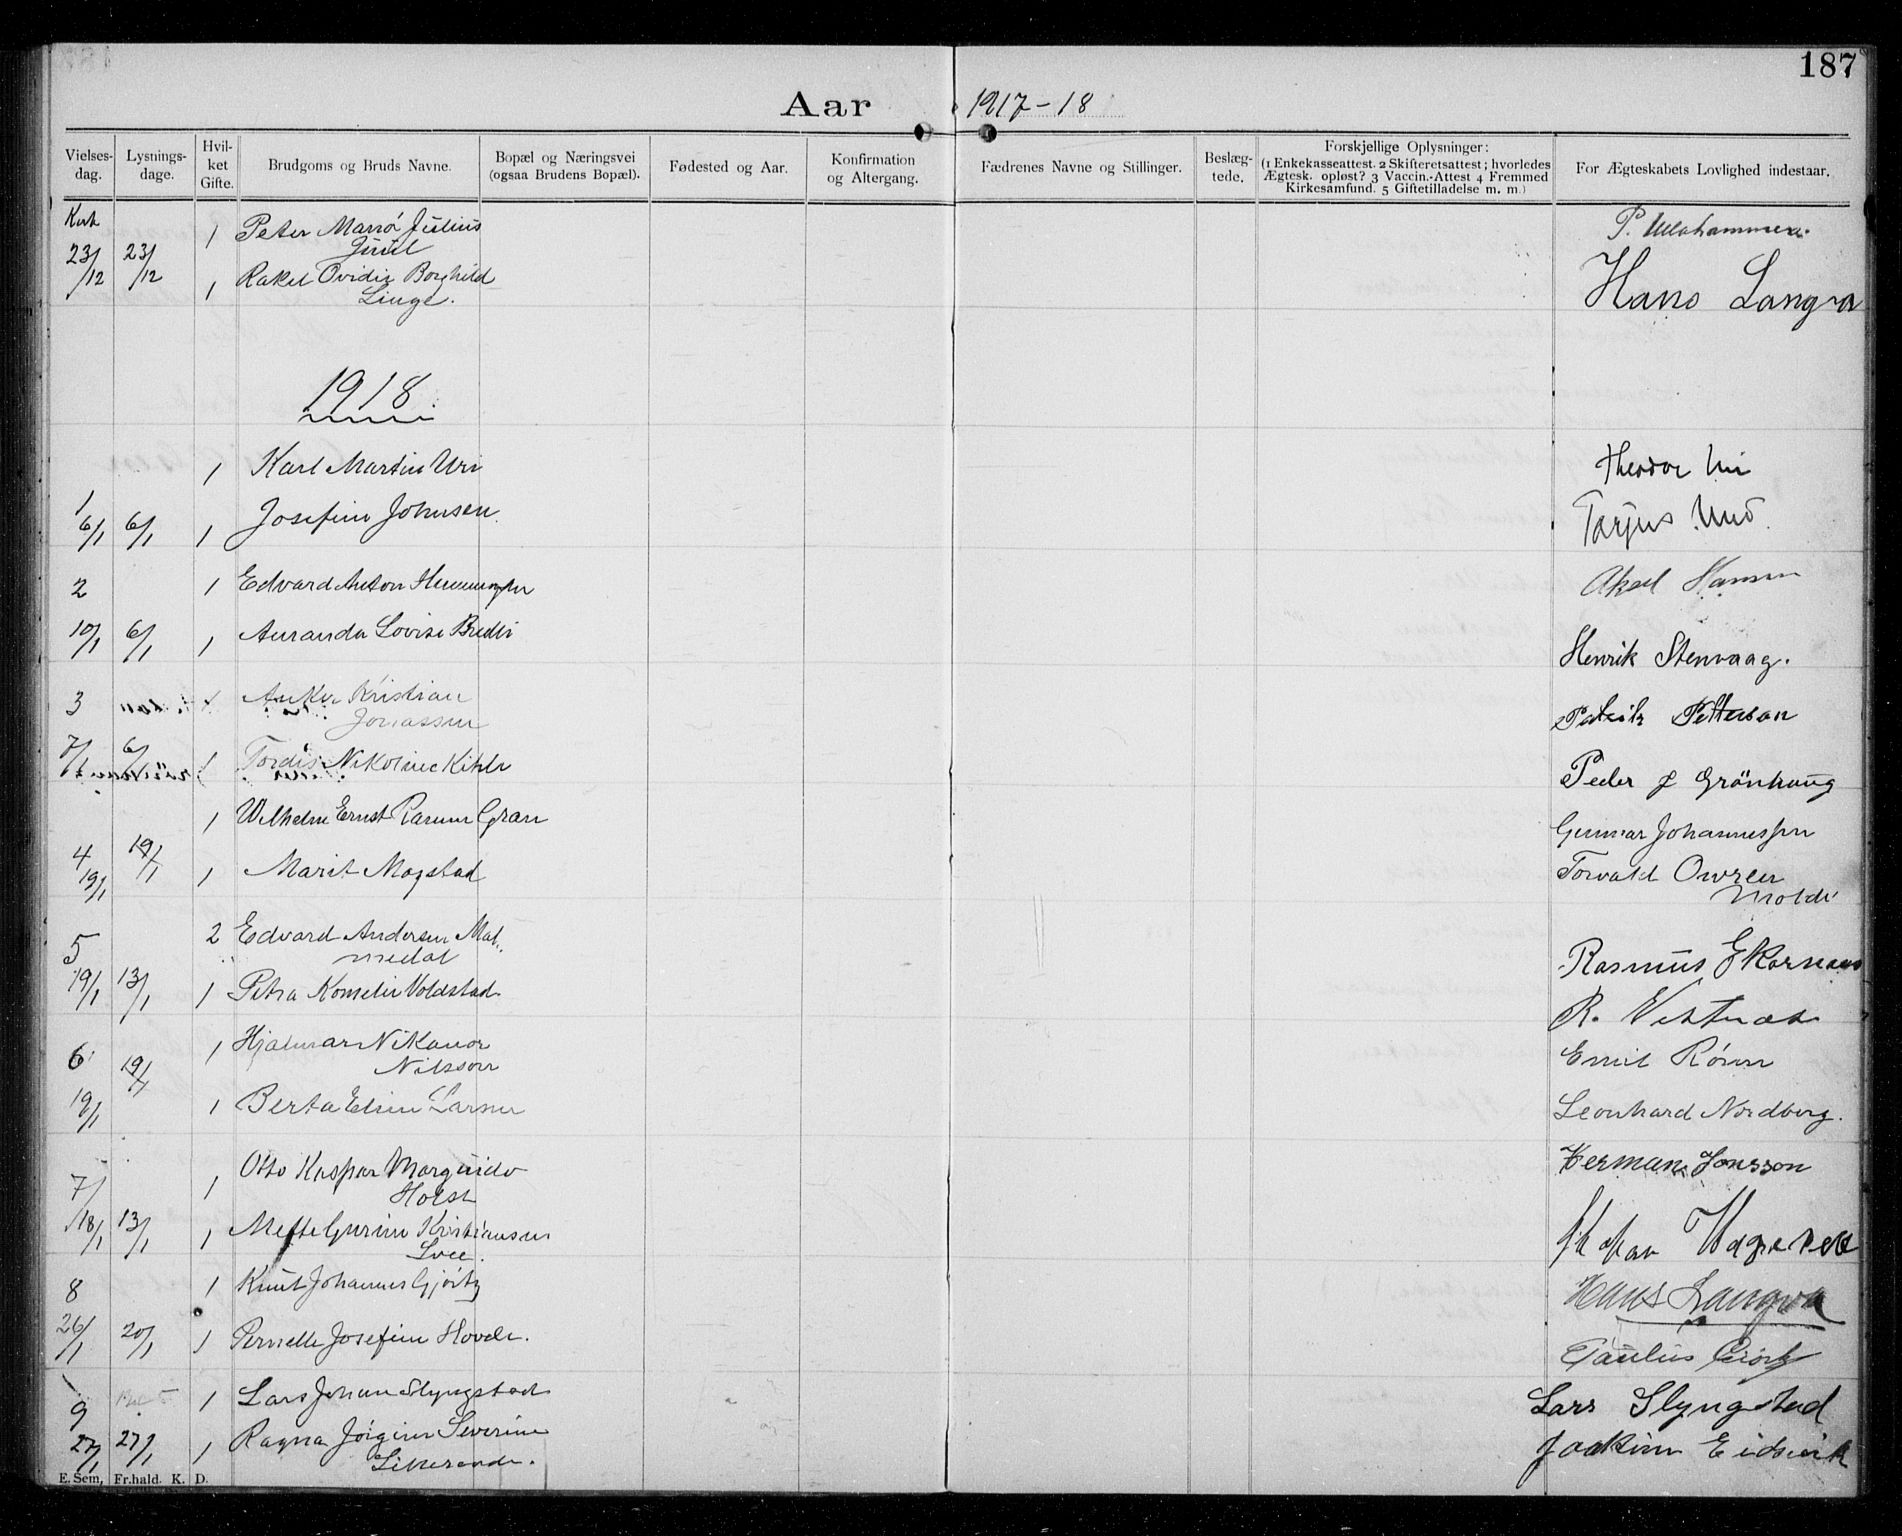 187
Aar 1917-18
Vielses-dag.
Lysnings-dage.
Hvil-ket Gifte.
Brudgoms og Bruds Navne.
Bopæl og Næringsvei
(ogsaa Brudens Bopæl).
Fødested og Aar.
Konfirmation
og Altergang.
Fædrenes Navne og Stillinger.
Beslæg-tede.
Forskjellige Oplysninger:
(1 Enkekasseattest. 2 Skifteretsattest; hvorledes
Ægtesk. opløst? 3 Vaccin.-Attest 4 Fremmed
Kirkesamfund. 5 Giftetilladelse m. m.)
For Ægteskabets Lovlighed indestaar.
1 Peter Julius
Juul
23/12 23/12
1 Rakel Borghild
Linge.
Hans Langva
1918
1 Karl Martin Uri Theodor Uri
1
6/1 6/1 1 Josefine Johnsen Torjus
2 1 Edvard Anton Aksel Hansen
10/1 6/1 1 Lovise
Henrik Stenvaag.
3 Anker Kristian
Jonassen
Patrik Petterson
7/1 6/1 1 Tordis Nikoline
Peder J Grönhaug
1 Wilhelm Ernst Gran
Gunnar Johannessen
4
19/1 19/1 1 Marit Magstad
Torvald Owren
Molde
5 2 Edvard Andersen Mal-
medal
Rasmus Ekornaas
19/1 13/1 1 Petra Voldstad
R.
6 1 Hjalmar Nikanor
Nilsson
Emil
19/1 19/1 1 Berta Larsen
Leonhard Nordberg.
7/ 1 Otto Kaspar
Holst
Herman Jonsson
18/1 13/1 1 Mette Gurine Kristiansen
8 1 Knut Johannes Gjörtz
Hans Langva
26/1 20/1 1 Pernelle Josefine Hovde.
Paulus
9 1 Lars Johan Slyngstad
Lars Slyngstad
27/1 27/1 1 Ragna Severine
Joakim Eidsvik
E. Sem, Fr.hald. K. D.